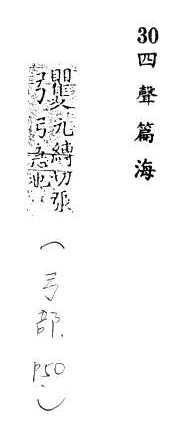 30四聲篇海
九縛切張
弓急也
(弓部. P50)